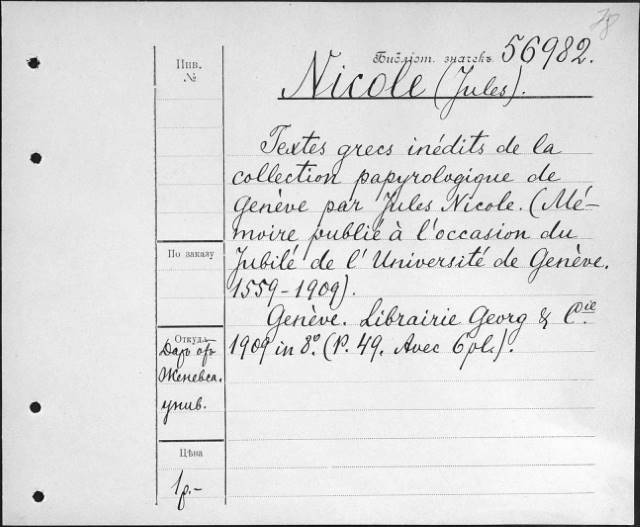 78
Библіот. значекъ 56982.
Инв.
№
Nicole (Jules).
Textes grecs inédits de la
collection papyrologique de
Genève par Jules Nicole. (Mé-
moire publié à l'occasion du
Jubilé de l'Université de Genève.
1559-1909).
Genève. Librairie Georg & Cie.
1909 in 8º. (P. 49. Avec 6 pl.).
По заказу
Откуда
Даръ отъ
Женевск.
унив.
Цѣна
1р.-